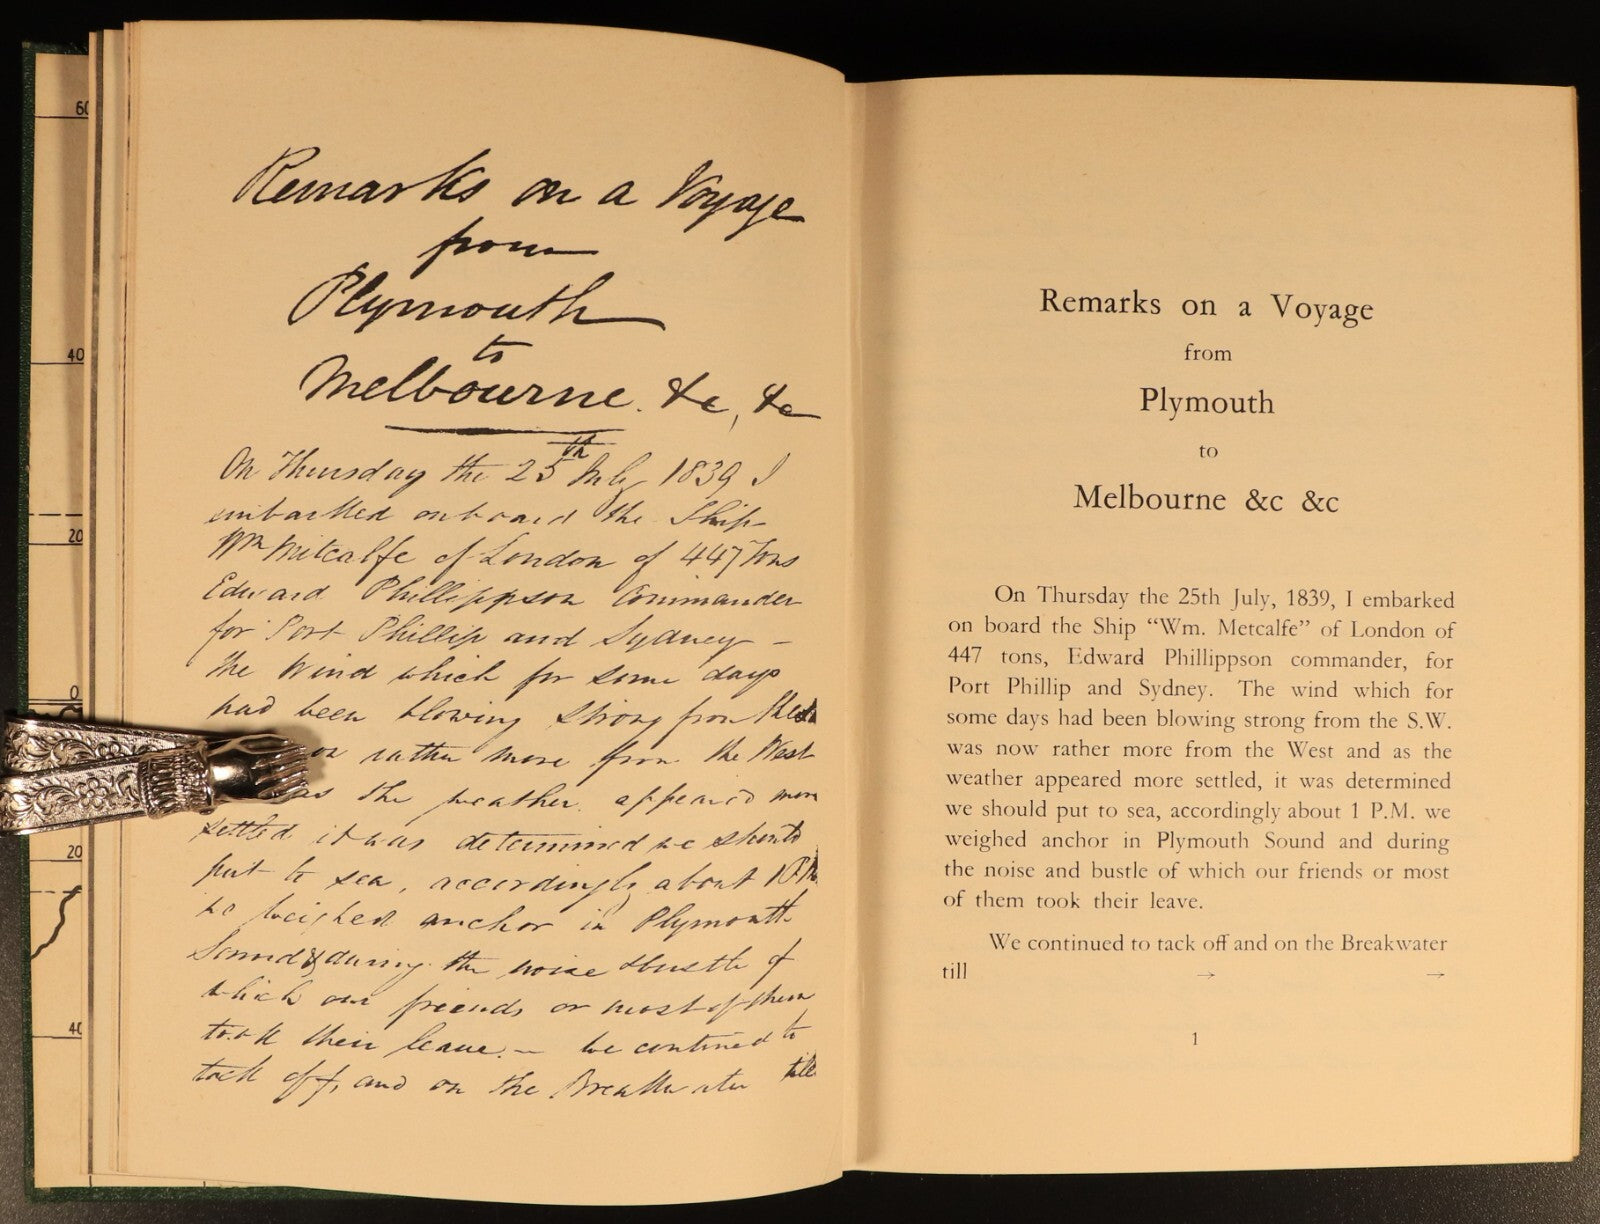 60
40
20
0
20
40
Remarks on a Voyage
from
Plymouth
to
Melbourne. &c, &c
On Thursday the 25th July, 1839 I
embarked onboard the Ship
Wm Metcalfe of London of 447 Tons
Edward Phillippson Commander
for Port Phillip and Sydney –
the Wind which for some days
had been blowing strong from the
or rather more from the West
as the weather appeared more
settled it was determined we should
put to sea, accordingly about 1 P.M.
we weighed anchor in Plymouth
Sound & during the noise & bustle of
which our friends or most of them
took their leave. – we continued to
tack off, and on the Breakwater till
Remarks on a Voyage
from
Plymouth
to
Melbourne &c &c
On Thursday the 25th July, 1839, I embarked
on board the Ship “Wm. Metcalfe” of London of
447 tons, Edward Phillippson commander, for
Port Phillip and Sydney. The wind which for
some days had been blowing strong from the S.W.
was now rather more from the West and as the
weather appeared more settled, it was determined
we should put to sea, accordingly about 1 P.M. we
weighed anchor in Plymouth Sound and during
the noise and bustle of which our friends or most
of them took their leave.
We continued to tack off and on the Breakwater
till → →
1